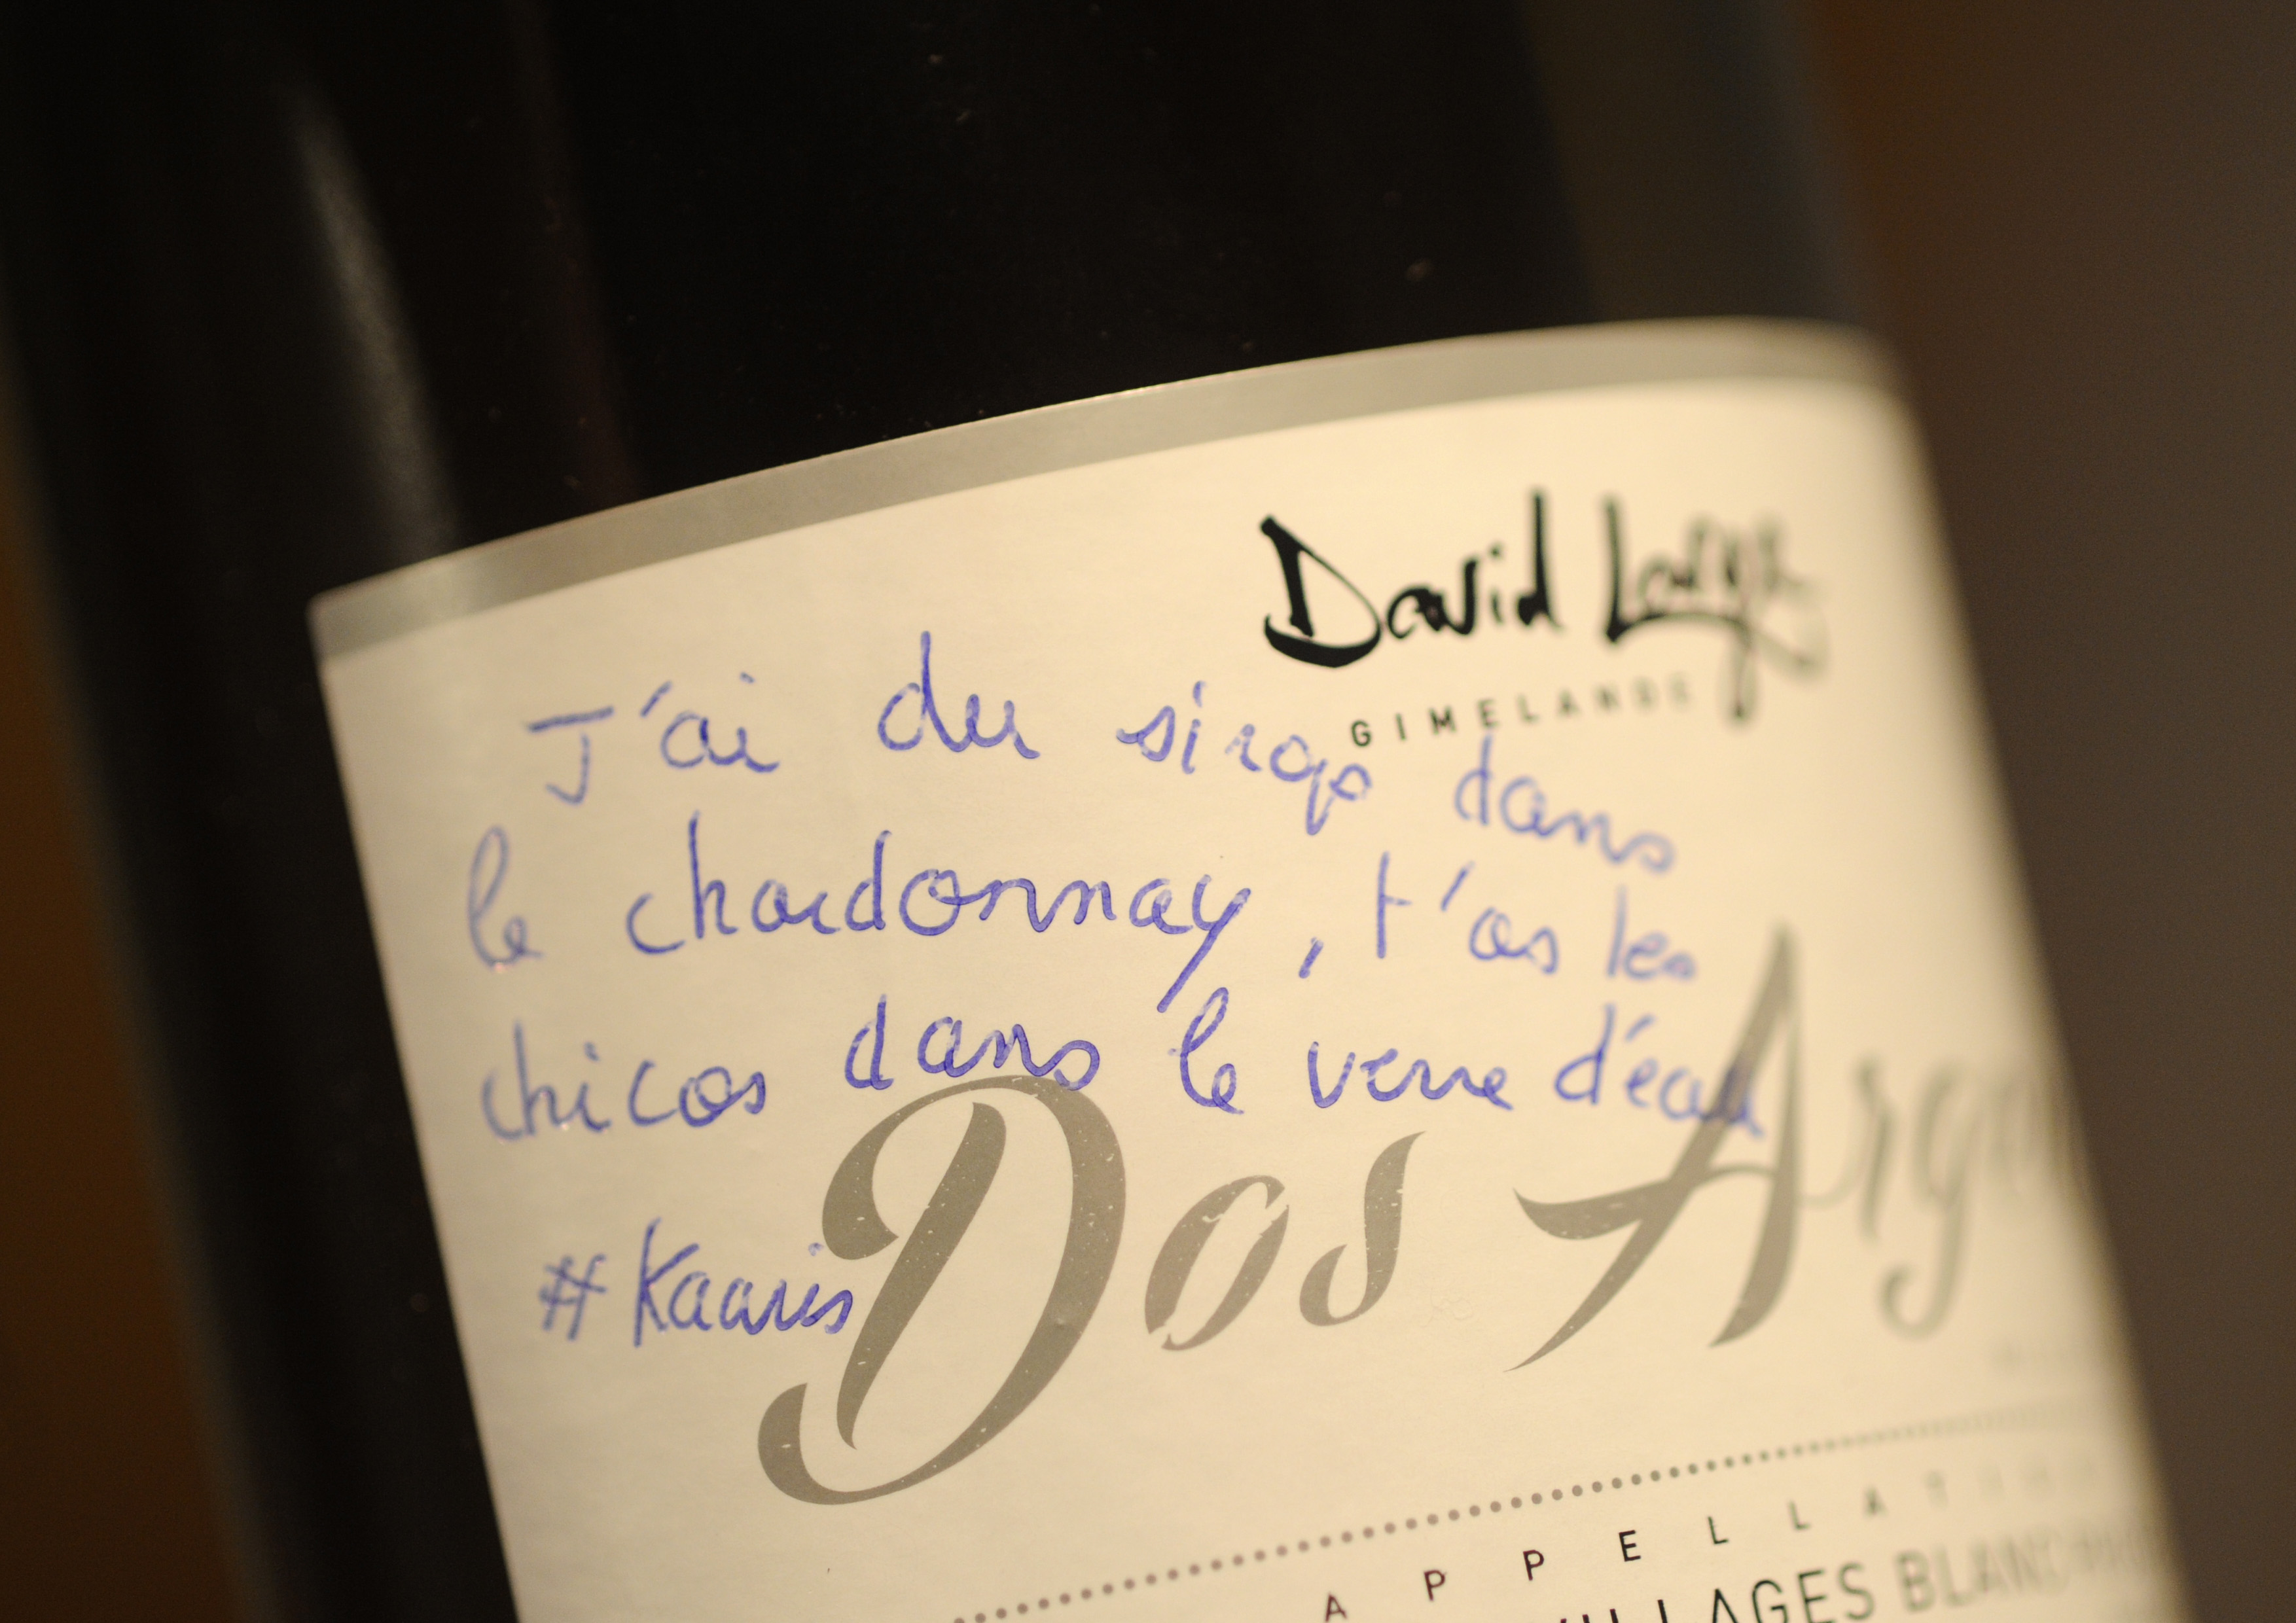 David Large
GIMELANDE
J'ai du sirop dans
le chardonnay, t'as les
chicos dans le verre d'eau
#Kaaris
Dos Arg
APPELLAT
VILLAGES BLANC